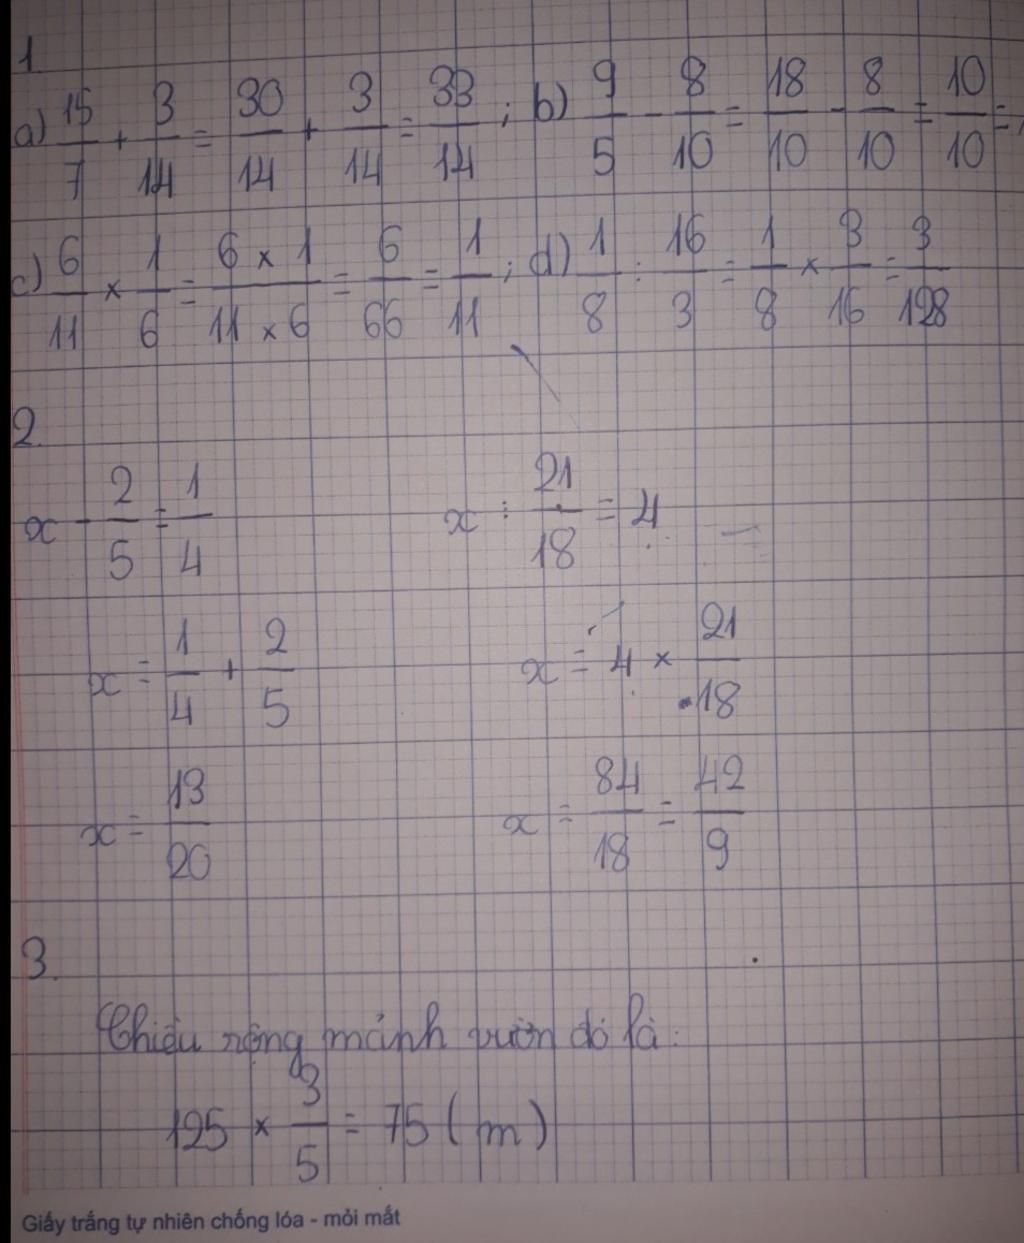 1
a) 15/7 + 3/14 = 30/14 + 3/14 = 33/14 ; b) 9/5 - 8/10 = 18/10 - 8/10 = 10/10 =
c) 6/11 × 1/6 = 6 × 1/11 × 6 = 6/66 = 1/11 ; d) 1/8 : 16/3 = 1/8 × 3/16 = 3/128
2.
x - 2/5 = 1/4 x : 21/18 = 4
x = 1/4 + 2/5 x = 4 × 21/18
x = 13/20 x = 84/18 = 42/9
3.
Chiều rộng mảnh vườn đó là:
125 × 3/5 = 75 ( m )
Giấy trắng tự nhiên chống lóa - mỏi mắt